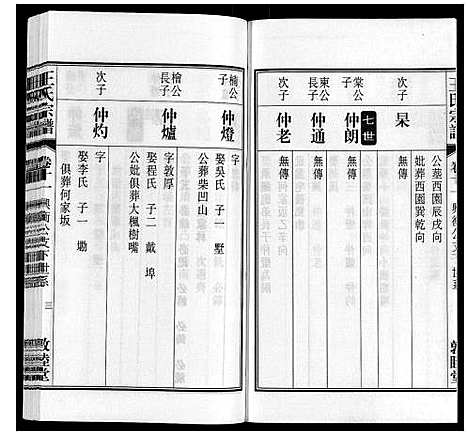 王氏宗譜
公墓西園辰戌向
妣葬西園巽乾向
次子
杲
無傳
七世
棠公子
仲朗
無傳
東公長子
仲通
無傳
次子
仲老
無傳
楠公子
仲燈
字
娶吳氏 子一 墅
公葬柴凹山
檜公長子
仲爐
字敦厚
娶程氏 子二 戴 埠
公妣俱葬大楓樹嘴
次子
仲灼
字
娶李氏 子一 勘
俱葬何家坂
王氏宗譜
卷十一
三
敦睦堂